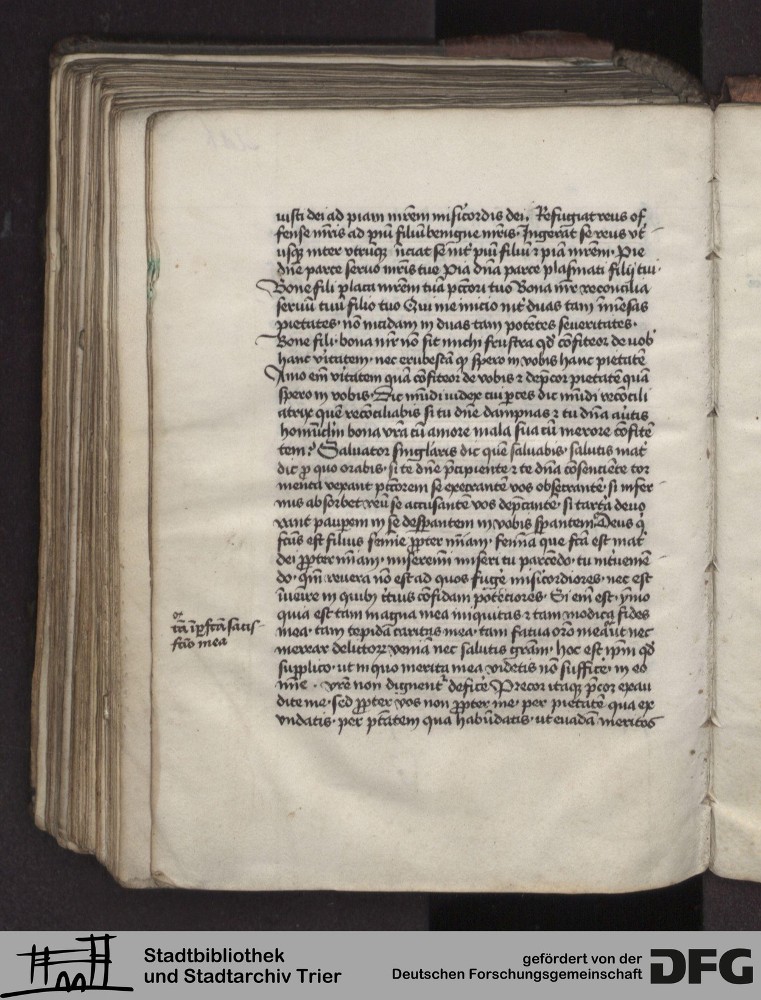 iusti dei ad piam mr̄em misicordis dei. Refugiat reus of
fense mr̄is ad piū filiū benigne mr̄is. Ingerat se reus vt͛
usq; inter vtrūq; īiciat se int͛ piū filiū ⁊ piā mr̄em. Pie
dn̄e parce seruo mr̄is tue Pia dn̄a parce plasmati filij tui.
Bone fili placa mr̄em tuā pctōri tuo Bona mr̄ reconcilia
seruū tuū filio tuo Qui me inicio int͛ duas tam īmēsas
pietates. nō incidam in duas tam potētes seueritates.
Bone fili. bona mr̄ nō sit michi frustra qd̄ cōfiteor de uob͛
hanc v͛itatem. nec erubescā qꝫ spero in vobis hanc pietatē
Amo em̄ v͛itatem quā cōfiteor de vobis ⁊ dep̄cor pietatē quā
spero in vobis. Dic mūdi iudex cui ꝑces dic mūdi recōcili
atrix quē recōciliabis si tu dn̄e dampnas ⁊ tu dn̄a au͛tis
homūcl̄m bona vr̄a cū amore mala sua cū merore cōfitē
tem? Saluator singlāris dic quē saluabis. salutis mat͛
dic ꝓ quo orabis. si te dn̄e p̄cipiente ⁊ te dn̄a cōsenciēte tor
menta vexant pctōrem se execrantē vos obsecrantē. si infer
nus absorbet reū se accusantē vos dep̄cantē. si tartā deuo
rant pauꝑem in se desꝑantem in vobis sꝑantem. Deus q͛
fcūs est filius femīe ꝓpter mīam. femīa que fcā est mat͛
dei ꝓpter mīam. misereim̄ miseri tu parcēdo. tu int͛ueniē
do. Qm̄ reuera nō est ad quos fuge͛ misic͛ordiores. nec est
īueire in quib; c͛cius cōfidam potēciores. Si em̄ est. ymo
quia est tam magna mea iniquitas ⁊ tam modica fides
mea. tam tepida caritas mea. tam fatua orō mea. ut nec
merear delictoꝝ veniā nec salutis grām. hoc est ip̄m qd̄
supplico. ut in quo merita mea videtis nō suffice͛. in eo
mīe . vr̄e non dignent͛ defice͛ Precor itaq; p̄cor exau
dite me. sed ꝓpter vos non ꝓpter me. per pietatē qua ex
undatis. per ptātem qua habūdatis. ut euadā meritos
tā īꝑfcā satis
fctō mea
Stadtbibliothek
und Stadtarchiv Trier
gefördert von der
Deutschen Forschungsgemeinschaft
DFG